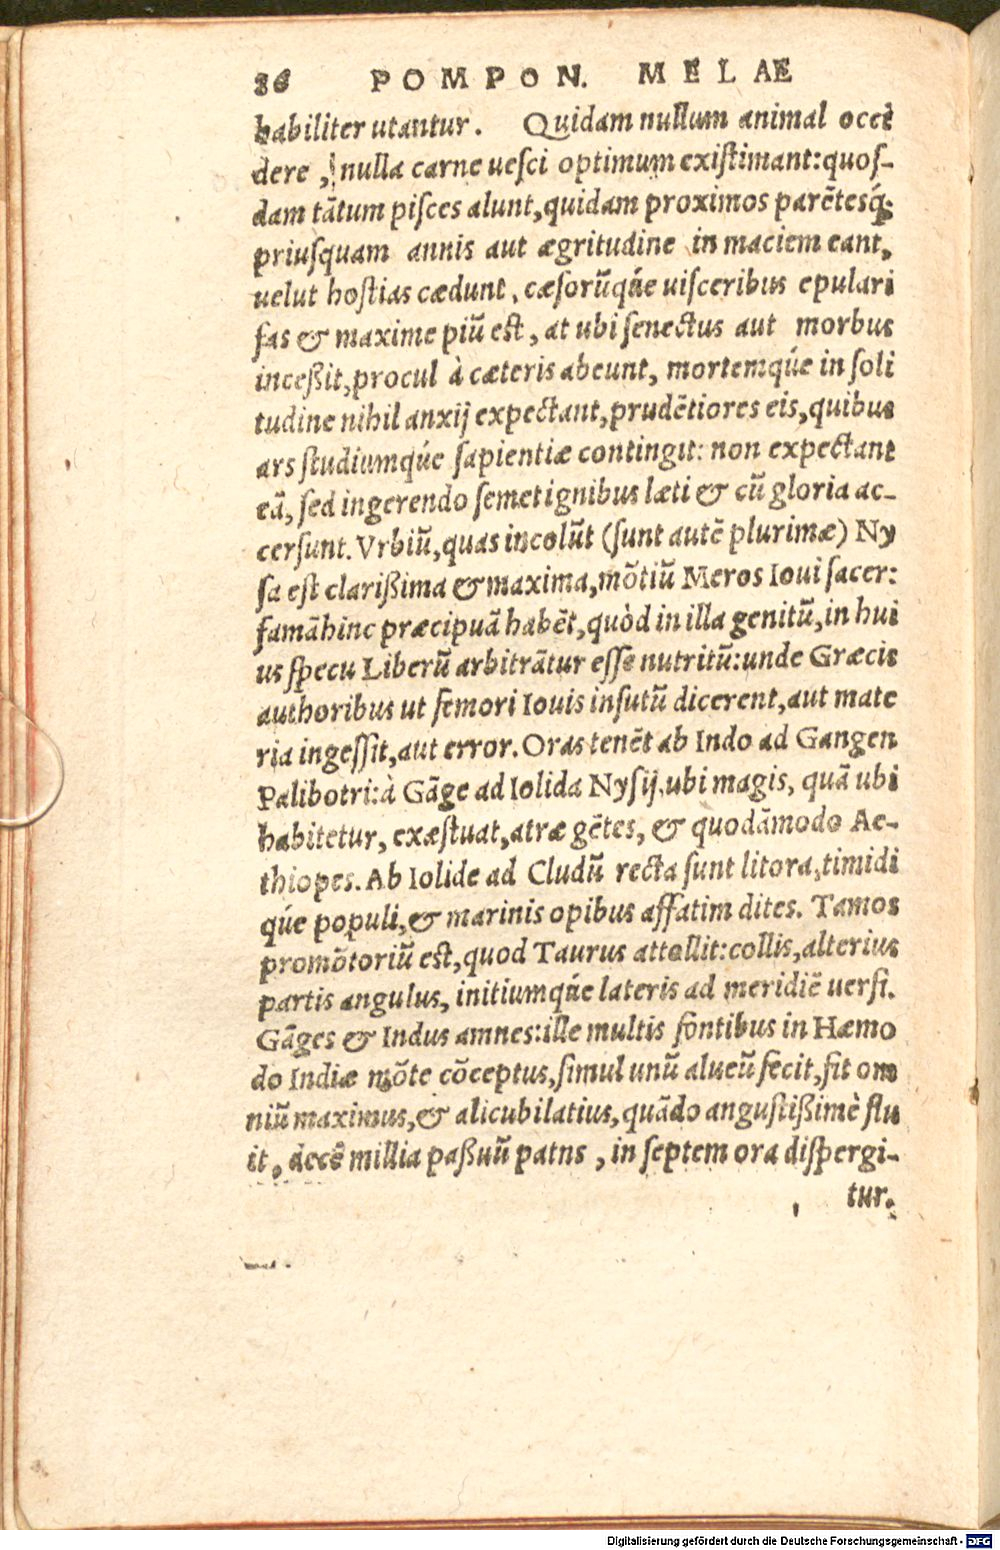 86 POMPON. MELAE
habiliter utantur. Quidam nullum animal occi
dere, nulla carne uesci optimum existimant: quos-
dam tātum pisces alunt, quidam proximos parētesq́;
priusquam annis aut ægritudine in maciem eant,
uelut hostias cædunt, cæsorūq́ue uisceribus epulari
fas & maxime piū est, at ubi senectus aut morbus
inceßit, procul à cæteris abeunt, mortemq́ue in soli
tudine nihil anxij expectant, prudētiores eis, quibus
ars studiumq́ue sapientiæ contingit: non expectant
eā, sed ingerendo semet ignibus læti & cū gloria ac-
cersunt. Vrbiū, quas incolūt (sunt autē plurimæ) Ny
sa est clarißima & maxima, mōtiū Meros Ioui sacer:
famā hinc præcipuā habēt, quòd in illa genitū, in hui
us specu Liberū arbitrātur esse nutritū: unde Græcis
authoribus ut femori Iouis insutū dicerent, aut mate
ria ingessit, aut error. Oras tenēt ab Indo ad Gangen
Palibotri: à Gāge ad Iolida Nysij, ubi magis, quā ubi
habitetur, exæstuat, atræ gētes, & quodāmodo Ae-
thiopes. Ab Iolide ad Cludū recta sunt litora, timidi
q́ue populi, & marinis opibus affatim dites. Tamos
promōtoriū est, quod Taurus attollit: collis, alterius
partis angulus, initiumq́ue lateris ad meridiē uersi.
Gāges & Indus amnes: ille multis fontibus in Hæmo
do Indiæ mōte cōceptus, simul unū alueū fecit, fit om
niū maximus, & alicubi latius, quādo angustißimè flu
it, decē millia paßuū patns, in septem ora dispergi-
tur.
Digitalisierung gefördert durch die Deutsche Forschungsgemeinschaft - DFG